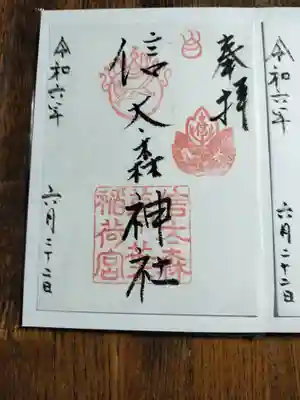 令和六年 六月二十二日
奉拝
信太森神社
信太森
稲荷宮
令和六年 六月二十二日